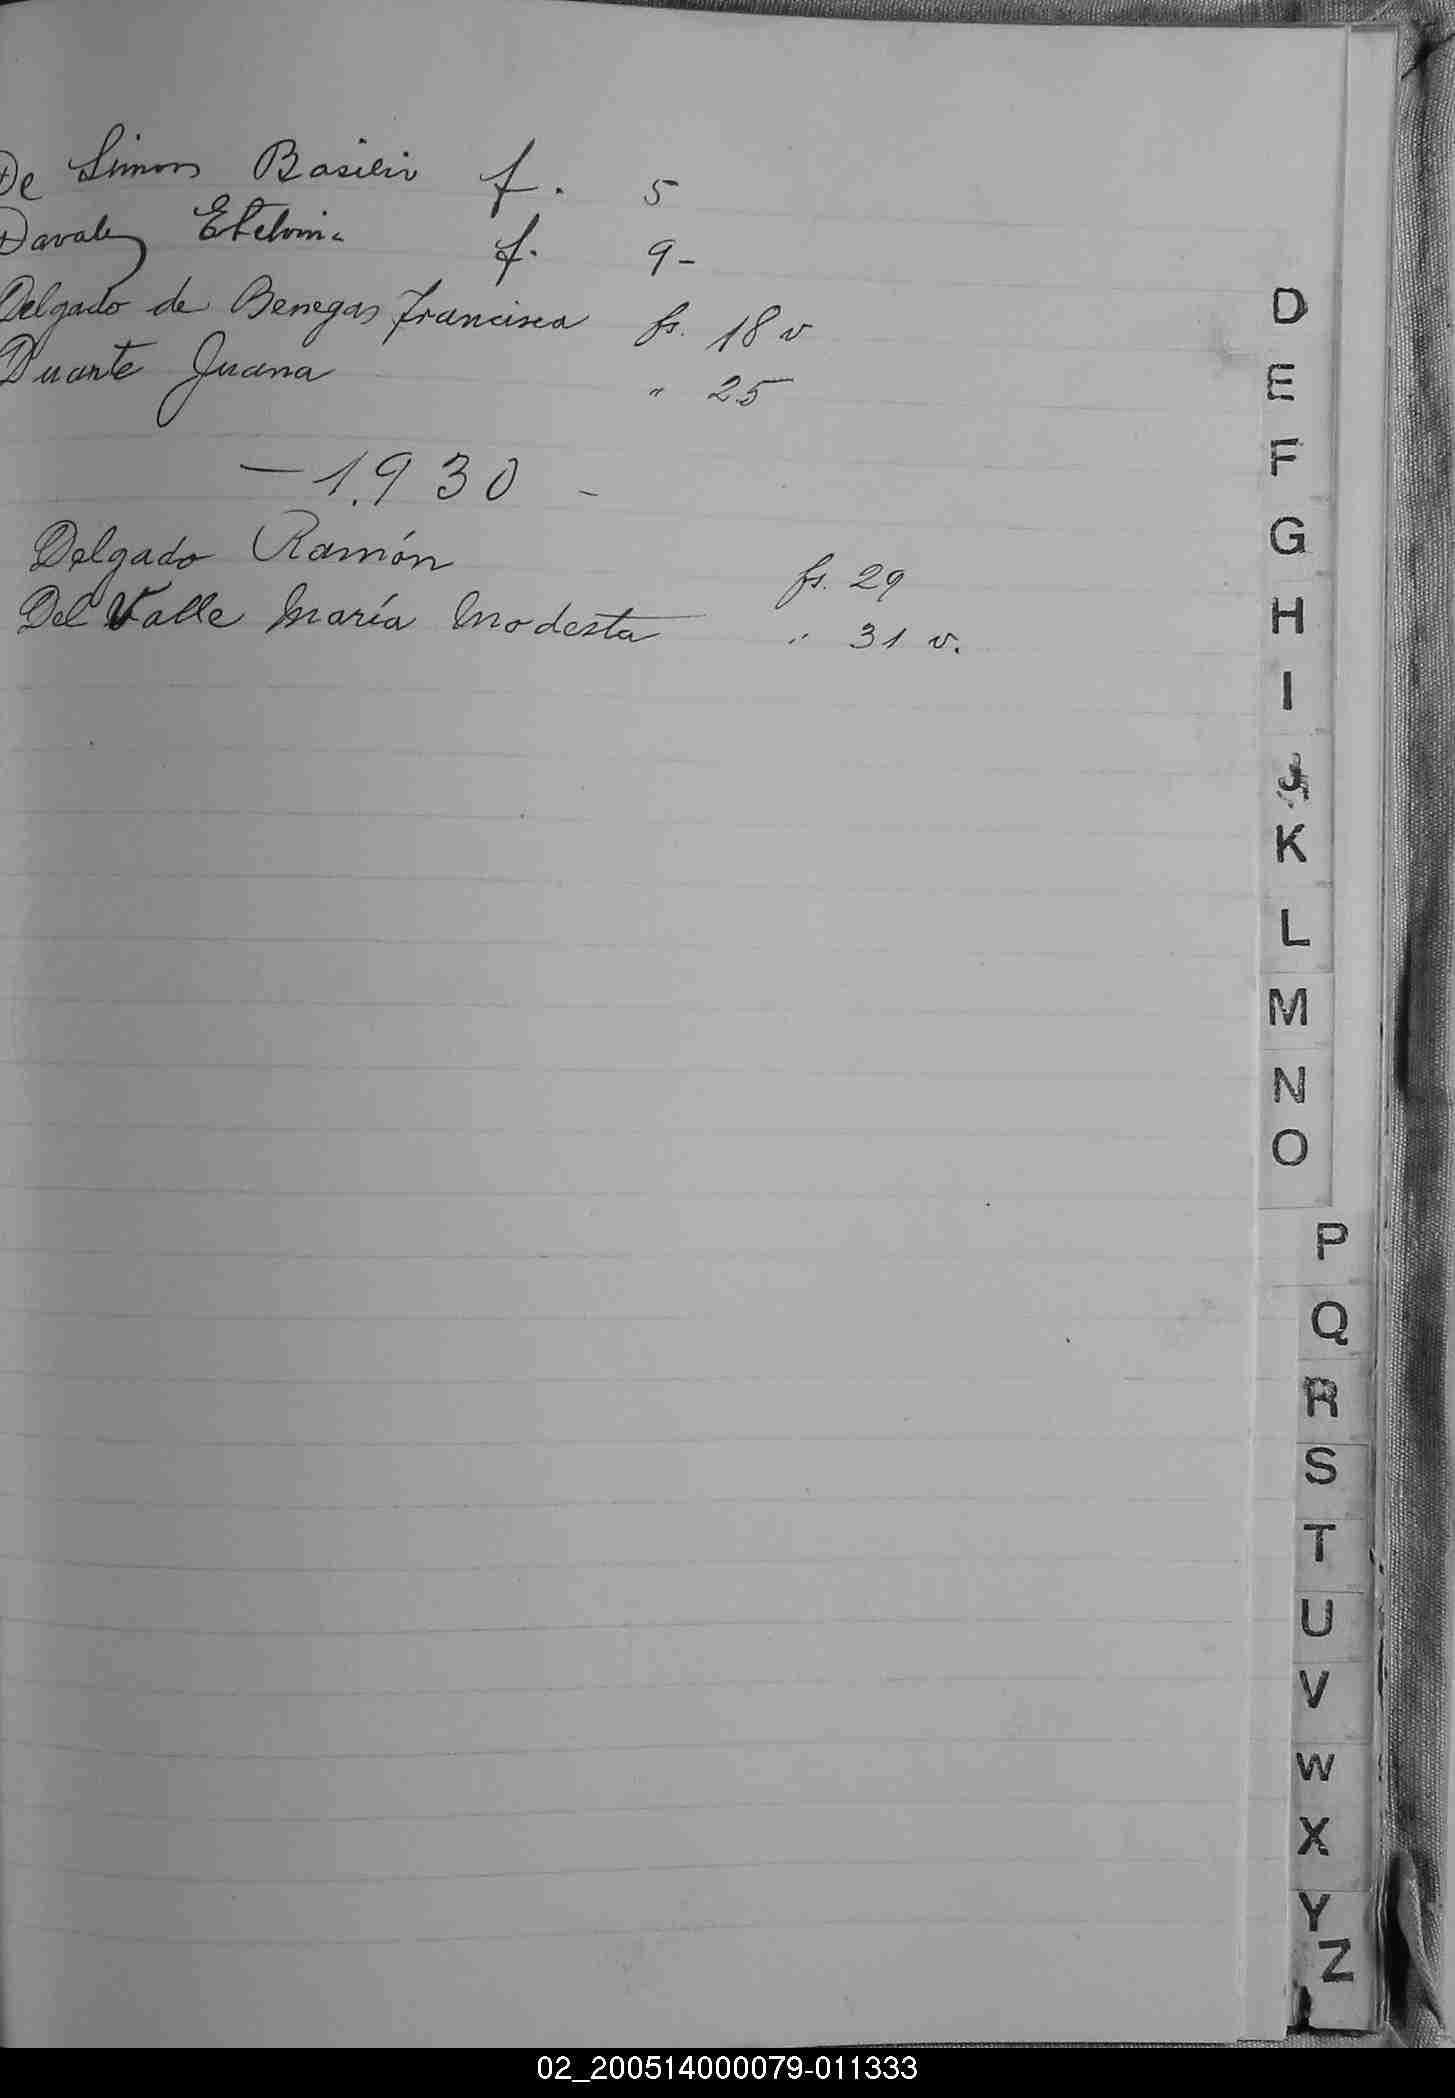 De Simon Basilio f. 5
Davalez Etelvina f. 9-
Delgado de Benegas Francisca fs. 18 v
Duarte Juana " 25
- 1.930 -
Delgado Ramón fs. 29
Del Valle María Modesta " 31 v.
D
E
F
G
H
I
J
K
L
M
N
O
P
Q
R
S
T
U
V
W
X
Y
Z
02_200514000079-011333